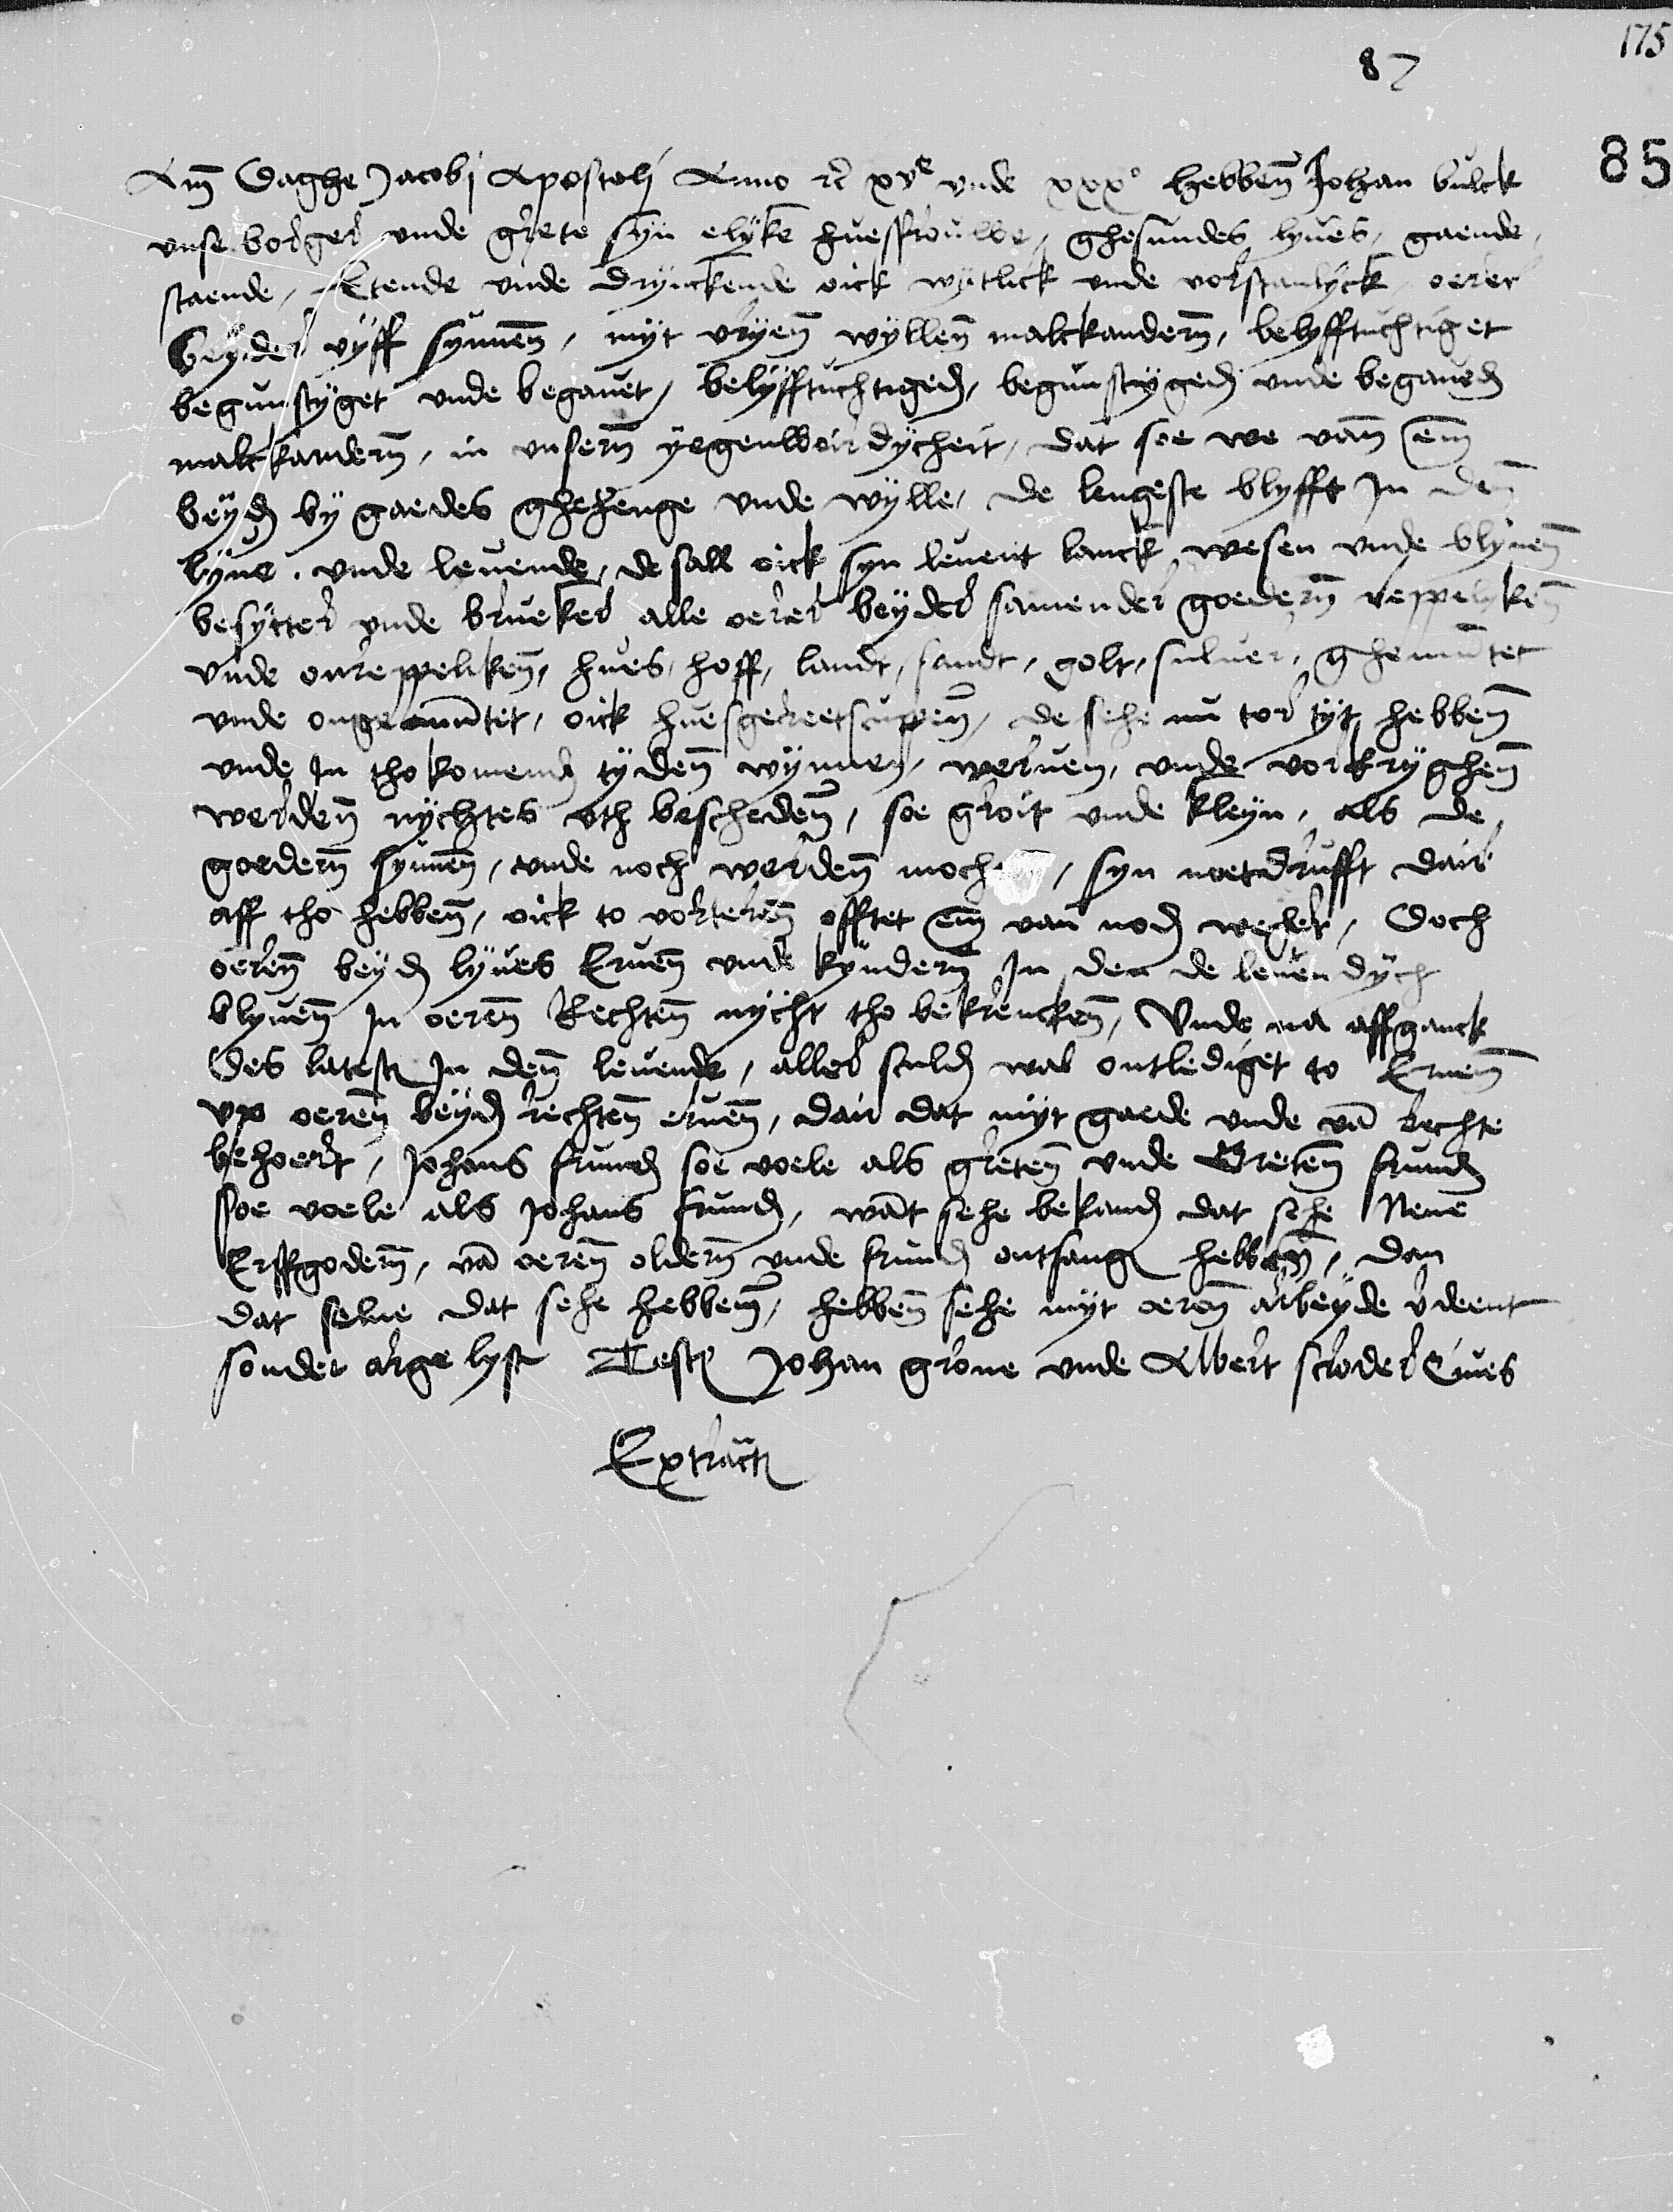 175
87
85
Am Daghe Jacobi Apostoli Anno rc xvc unde xxxo hebben Johan bulck
unse borger unde grete syn elyke huesfrouwe, ghesundes lyves, gaende,
staende, Etende unde drynckende oick wytlick unde vorstantlyck oerer
beyder vyff synnen, myt vryen wyllen malckandern, belyfftuchtiget
begunstyget unde begavet, belyfftuchtigeden, begunstygeden unde begaveden
malckandern, in unsern yegenwoirdycheit, dat soe we van em
beyden by gaedes ghehenge unde wylle, de lengeste blyfft In den
lyve, unde levende, de sall oick syn levent lanck wesen unde blyven
besytter unde brueker alle oerer beyder samender goedern reppelyken
unde onreppeliken, hues, hoff, landt, sandt, golt, sulver, ghemuntet
unde ongemuntet, oick huesgereetscuppen, de sehe nu tor tyt hebben
unde In tho komenden tyden wynnen, werven, unde vorkryghen
werden nychtes uth bescheden, soe groit unde kleyn, als de
goedern synnen, unde noch werden moch , syn noetdrufft dair
aff tho hebben, oick to vorteren offtet em van noden were, Doch
oeren beyden lyves Erven unde kyndern In den de levendych
blyven In oeren Rechten nycht tho bekrencken, Unde na affganck
Des latesten In den levende, aller schulden wal ontlediget to Erven
up oeren beyden rechten erven, dair dat myt gaede unde van rechte
behoert, Johans frunden soe voele als greten unde Greten frunden
soe voele als Johans frunden, want sehe bekanden dat sehe Nene
Erffgodern, van oeren oldern unde frunden ontfangen hebben, dan
dat selve dat sehe hebben, hebben sehe myt oeren arbeyde vdeent
sonder arge lyst Testes Johan grone unde Albert scroder Cives
Extractum